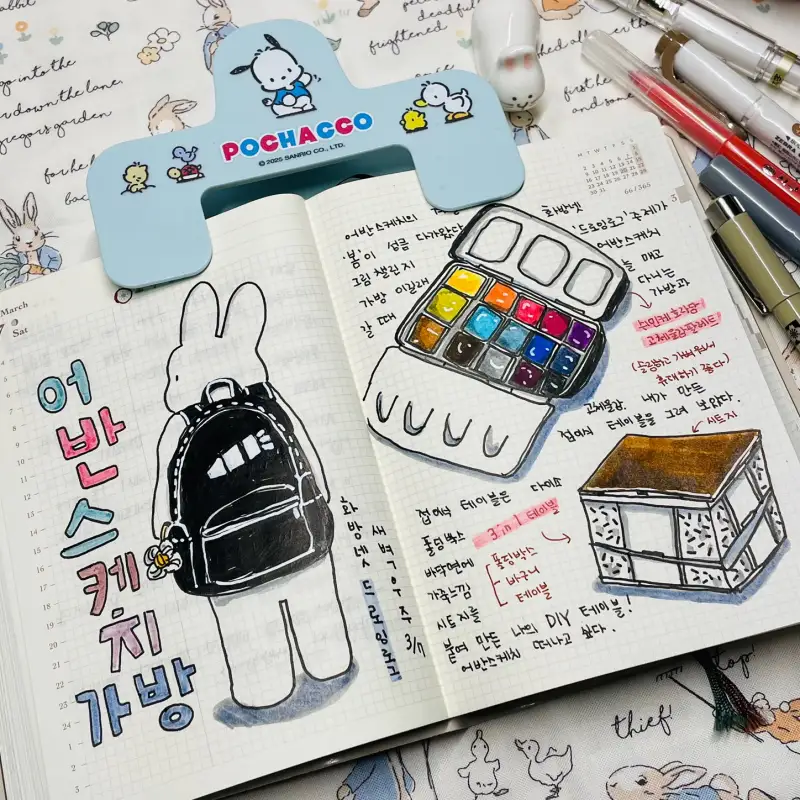 POCHACCO
© 2025 SANRIO CO., LTD.
March
Sat
어반스케치
가방
화방넷 새벽우주 3/7
드로잉로그
어반스케치의
화방넷
봄이 성큼 다가왔다
'드로잉로그' 주제가
그림 챌린지
어반스케치
가방 이길래
늘 메고
갈 때
다니는
가방과
고체물감팔레트
(슬림하고 가벼워서
휴대하기 좋다)
고체물감. 내가 만든
접이식 테이블을 그려 보았다.
시트지
접이식 테이블은 다이소
폴딩박스 3 in 1 테이블
바닥면에 폴딩박스
가죽느낌 바구니
시트지를 테이블
붙여 만든 나의 DIY 테이블!
어반스케치 떠나고 싶다.
M T W T F S S
66/365
go into the
down the lane,
gregor's garden
frightened
first he
and some
thief!
top!